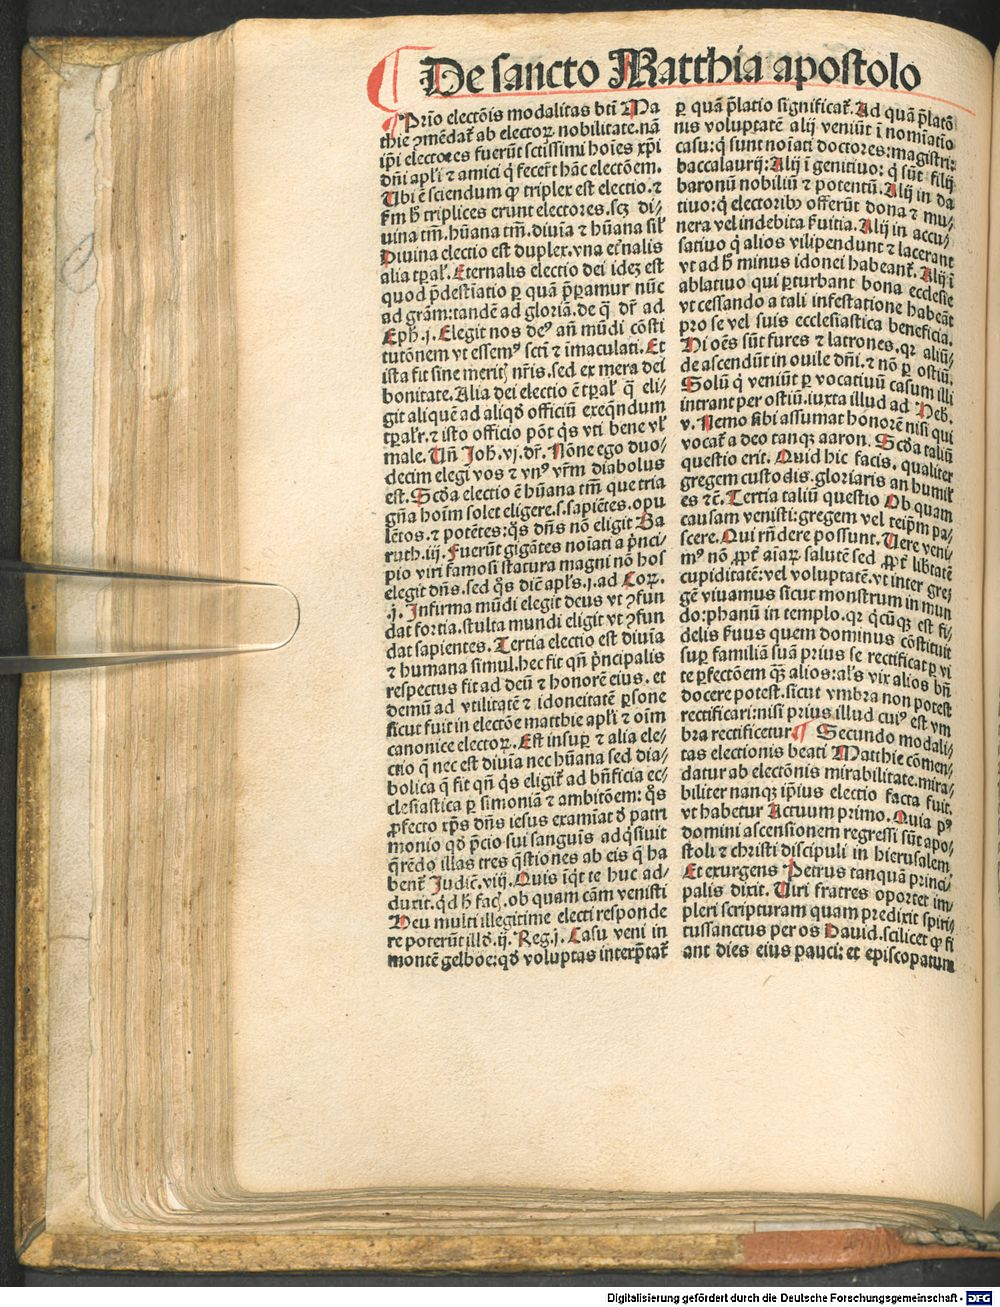 De sancto Matthia apostolo
Prīo electōis modalitas bt̄i Ma
thie ꝯmēdat̄ ab electoꝝ nobilitate. nā
ip̄i electores fuerūt sctissimi hoīes xp̄i
dn̄i apl̄i ⁊ amici q̄ fecer̄t hāc electōem.
Ubi ē sciendum ꝙ triplex est electio. ⁊
ẜm ꝭ triplices erunt electores. scꝫ di⸗
uina tm̄. hūana tm̄. diuīa ⁊ hūana sil̄
Diuina electio est duplex. vna et̄nalis
alia tꝑal̄. Eternalis electio dei idez est
quod p̄destīatio ꝑ quā p̄ꝑamur nūc
ad grām: tandē ad gloriā. de q̄ dr̄ ad
Eph̄. j. Elegit nos deꝰ an̄ mūdi cōsti
tutōnem vt essemꝰ sct̄i ⁊ īmaculati. Et
ista fit sine merit̄ nr̄is. sed ex mera dei
bonitate. Alia dei electio ē tꝑal̄ q̄ eli⸗
git aliquē ad aliqd̄ officiū exeq̄ndum
tꝑal̄r. ⁊ isto officio pōt q̄s vti bene vl̄
male. Un̄ Joh̄. vj. dr̄. Nōne ego duo⸗
decim elegi vos ⁊ vnꝰ vr̄m diabolus
est. Scd̄a electio ē hūana tm̄ que tria
gn̄a hoīm solet eligere. s. sapiētes. opu
lētos. ⁊ potētes: q̄s dn̄s nō eligit Ba
ruth. iij. Fuerūt gigātes noīati a p̄nci⸗
pio viri famosi statura magni nō hos
elegit dn̄s. sed q̄s diē apl̄s. j. ad Coꝝ.
.j. Infirma mūdi elegit deus vt ꝯfun
dat fortia. stulta mundi eligit vt ꝯfun
dat sapientes. Tertia electio est diuīa
⁊ humana simul. hec fit qn̄ p̄ncipalis
respectus fit ad deū ⁊ honorē eius. et
demū ad vtilitatē ⁊ idoneitatē ꝑsone
sicut fuit in electōe matthie apl̄i ⁊ oīm
canonice electoꝝ. Est insuꝑ ⁊ alia ele⸗
ctio q̄ nec est diuīa nec hūana sed dia⸗
bolica q̄ fit qn̄ q̄s eligit̄ ad bn̄ficia ec⸗
clesiastica ꝑ simoniā ⁊ ambitōem: q̄s
ꝓfecto xp̄s dn̄s iesus examīat d̄ patri
monio qd̄ p̄cio sui sanguīs adq̄siuit
q̄rēdo illas tres q̄stiones ab eis q̄ ha
bent̄ Judic̄. viij. Quis īq̄t te huc ad⸗
duxit. qd̄ ꝭ fac̄. ob quam cām venisti
Heu multi illegitime electi responde
re poterūt illd̄. ij. Reg. j. Casu veni in
montē gelboe: qd̄ voluptas interp̄tat̄
ꝑ quā p̄latio significat̄. Ad quā p̄latō
nis voluptatē alij veniūt ī nomīatio
casu: q̄ sunt noīati doctores: magistri:
baccalaurij: Alij ī genitiuo: q̄ sūt filij
baronū nobiliū ⁊ potentū. Alij in da
tiuo: q̄ electoribꝰ offerūt dona ⁊ mu⸗
nera vel indebita ẜuitia. Alij in accu⸗
satiuo q̄ alios vilipendunt ⁊ lacerant
vt ad ꝭ minus idonei habeant̄. Alij ī
ablatiuo qui ꝑturbant bona ecclesie
vt cessando a tali infestatione habeāt
pro se vel suis ecclesiastica beneficia.
Hi oēs sūt fures ⁊ latrones. qꝛ aliū⸗
de ascendūt in ouile dn̄i. ⁊ nō ꝑ ostiū.
Solū q̄ veniūt ꝑ vocatiuū casum illi
intrant per ostiū. iuxta illud ad Heb.
v. Nemo sibi assumat honorē nisi qui
vocat̄ a deo tanqꝫ aaron. Scd̄a taliū
questio erit. Quid hic facis. qualiter
gregem custodis. gloriaris an humil̄
es ⁊c̄. Tertia taliū questio Ob quam
causam venisti: gregem vel teip̄m pa⸗
scere. Qui rn̄dere possunt. Uere veni⸗
mꝰ nō ꝓpt̄ aīaꝝ salutē sed ꝓpt̄ libtatē
cupiditatē: vel voluptatē. vt inter gre⸗
gē viuamus sicut monstrum in mun
do: phanū in templo. qꝛ q̄cūqꝫ est fi⸗
delis ẜuus quem dominus cōstituit
suꝑ familiā suā prius se rectificat ꝑ vi
te ꝑfectōem qꝫ̄ alios: al̄s vix alios bn̄
docere potest. sicut vmbra non potest
rectificari: nisi prius illud cuiꝰ est vm
bra rectificetur ¶ Secundo modali⸗
tas electionis beati Matthie cōmen⸗
datur ab electōnis mirabilitate. mira⸗
biliter nanqꝫ ip̄ius electio facta fuit.
vt habetur Actuum primo. Quia pꝰ
domini ascensionem regressi sūt apo⸗
stoli ⁊ christi discipuli in hierusalem
Et exurgens Petrus tanquā princi⸗
palis dixit. Uiri fratres oportet im⸗
pleri scripturam quam predixit spiri⸗
tussanctus per os Dauid. scilicet ꝙ fi
ant dies eius pauci: et episcopatum
Digitalisierung gefördert durch die Deutsche Forschungsgemeinschaft - DFG